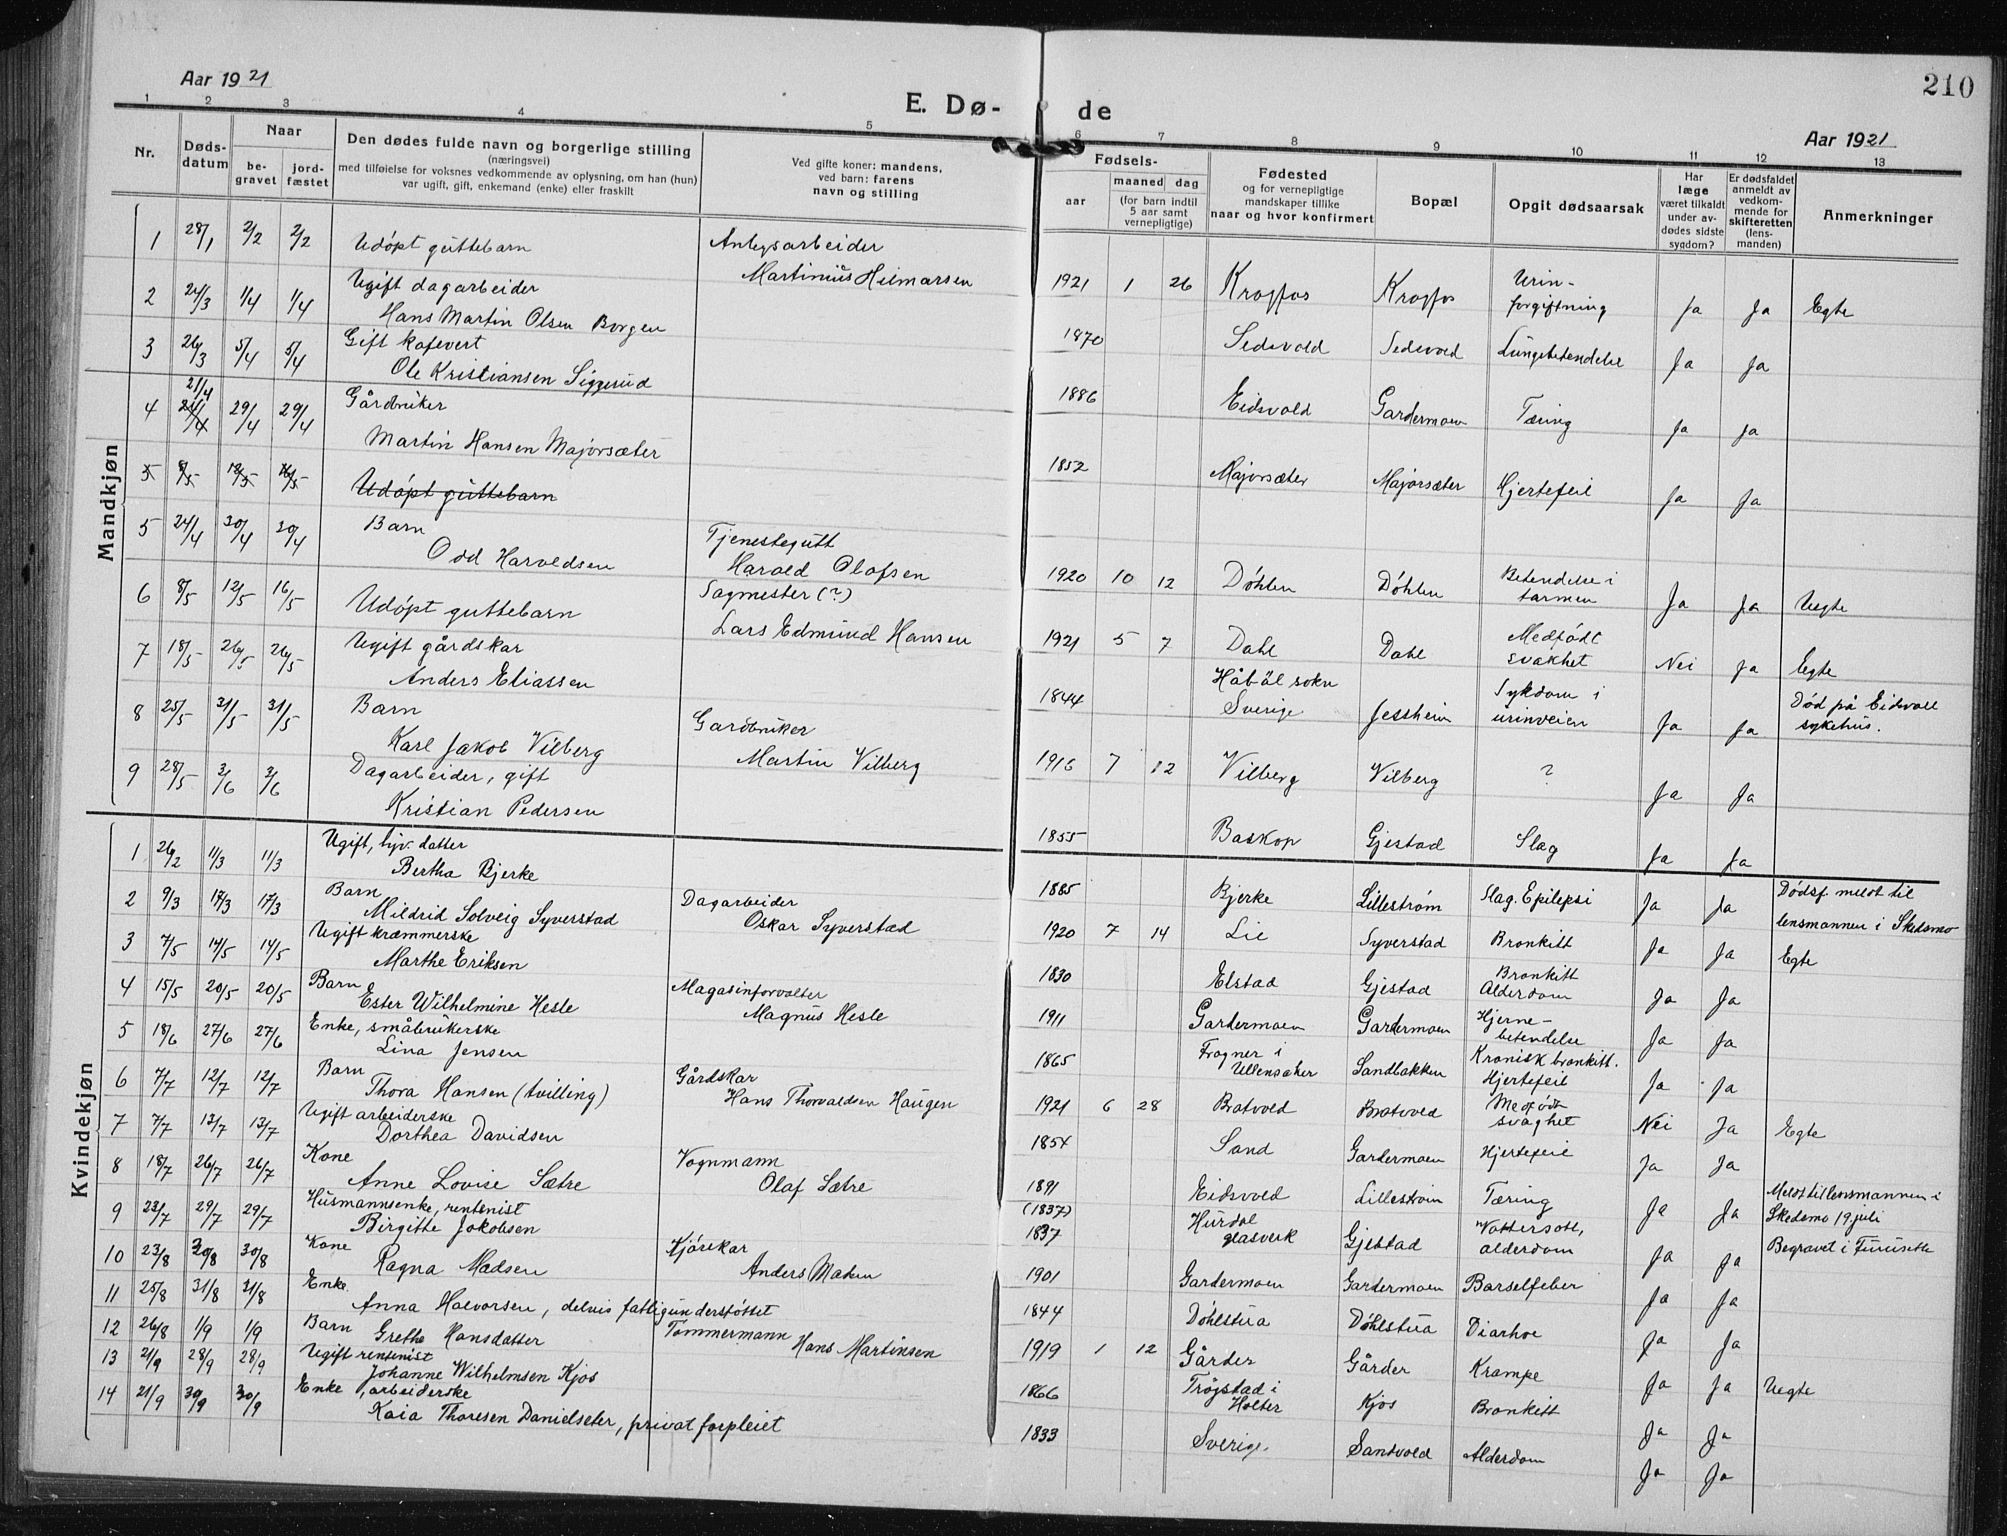 Aar 1921
E. Dø-
de
210
Aar 1921
1 2 3 4 5 6 7 8 9 10 11 12 13
Nr.
Døds-
datum
Naar
be-
gravet
jord-
fæstet
Den dødes fulde navn og borgerlige stilling
(næringsvei)
med tilføielse for voksnes vedkommende av oplysning, om han (hun)
var ugift, gift, enkemand (enke) eller fraskilt
Ved gifte koner: mandens,
ved barn: farens
navn og stilling
Fødsels-
aar
maaned dag
(for barn indtil
5 aar samt
vernepligtige)
Fødested
og for vernepligtige
mandskaper tillike
naar og hvor konfirmert
Bopæl
Opgit dødsaarsak
Har
læge
været tilkaldt
under av-
dødes sidste
sygdom?
Er dødsfaldet
anmeldt av
vedkom-
mende for
skifteretten
(lens-
manden)
Anmerkninger
Mandkjøn
1 28/1 2/2 2/2 Udøpt guttebarn Anlegsarbeider
Martinius Hilmarsen
1921 1 26 Krogfos Krogfos Urin-
forgiftning Ja Ja Egte
2 24/3 1/4 1/4 Ugift dagarbeider
Hans Martin Olsen Borgen
1870 Sedsvold Sedsvold Lungebetendelse Ja Ja
3 26/3 5/4 5/4 Gift kafevert
Ole Kristiansen Siggerud
1886 Eidsvold Gardermoen Tæring Ja Ja
4 21/4 24/4 29/4 29/4 Gårdbruker
Martin Hansen Majorsæter
1852 Majorsæter Majorsæter Hjertefeil Ja Ja
5 8/5 12/5 16/5 Udøpt guttebarn
5 24/4 30/4 30/4 Barn
Odd Haroldsen
Tjenestegutt
Harald Olafsen
1920 10 12 Døhlen Døhlen Betendelse i
tarmen Ja Ja Uegte
6 8/5 12/5 16/5 Udøpt guttebarn
Sagmester (?)
Lars Edmund Hansen
1921 5 7 Dahl Dahl Medfødt
svakhet Nei Ja Egte
7 18/5 26/5 26/5 Ugift gårdskar
Anders Eliassen
1844 Håbøl sokn
Sverige Jessheim Sykdom i
urinveien Ja Ja Død på Eidsvoll
sykehus.
8 25/5 31/5 31/5 Barn
Karl Jakob Vilberg
Gardbruker
Martin Vilberg
1916 7 12 Vilberg Vilberg ? Ja Ja
9 28/5 3/6 3/6 Dagarbeider, gift
Kristian Pedersen
1855 Baskop Gjestad Slag Ja Ja
Kvindekjøn
1 26/2 11/3 11/3 Ugift, hjv. datter
Bertha Bjerke
1885 Bjerke Lillestrøm Slag. Epilepsi Ja Ja Dødsf meldt til
lensmannen i Skedsmo
2 9/3 17/3 17/3 Barn
Mildrid Solveig Syverstad
Dagarbeider
Oskar Syverstad
1920 7 14 Lie Syverstad Bronkitt Ja Ja Egte
3 7/5 14/5 14/5 Ugift kræmmerske
Marthe Eriksen
1830 Elstad Gjestad Bronkitt
Alderdom Ja Ja
4 15/5 20/5 20/5 Barn
Ester Wilhelmine Hesle
Magasinforvalter
Magnus Hesle
1911 Gardermoen Gardermoen Hjerne-
betendelse Ja Ja
5 18/6 27/6 27/6 Enke, småbrukerske
Lina Jensen
1865 Frogner i
Ullensaker Sandbakken Kronisk bronkitt.
Hjertefeil Ja Ja
6 7/7 12/7 12/7 Barn
Thora Hansen (tvilling)
Gårdskar
Hans Thorvaldsen Haugen
1921 6 28 Bratvold Bratvold Medfødt
svaghet Nei Ja Egte
7 7/7 13/7 13/7 Ugift arbeiderske
Dorthea Davidsen
1854 Sand Gardermoen Hjertefeil Ja Ja
8 18/7 26/7 26/7 Kone
Anne Lovise Sætre
Vognmann
Olaf Sætre
1891 Eidsvold Lillestrøm Tæring Ja Ja Meldt til lensmannen i
Skedsmo 19 juli
9 23/7 29/7 29/7 Husmannsenke, rentenist
Birgitte Jakobsen
(1837)
1837 Hurdal
glasverk Gjestad Vattersott,
alderdom Ja Ja Begravet i Furusette
10 23/8 30/8 30/8 Kone
Ragna Madsen
Kjørekar
Anders Madsen
1901 Gardermoen Gardermoen Barselfeber Ja Ja
11 25/8 31/8 31/8 Enke
Anna Halvorsen, delvis fattigunderstøttet
1844 Døhlstua Døhlstua Diarhoe Ja Ja
12 26/8 1/9 1/9 Barn
Grethe Hansdatter
Tømmermann
Hans Martinsen
1919 1 12 Gårder Gårder Krampe Ja Ja Uegte
13 21/9 28/9 28/9 Ugift rentenist
Johanne Wilhelmsen Kjos
1866 Trøgstad i
Holter Kjos Bronkitt Ja Ja
14 21/9 30/9 30/9 Enke, arbeiderske
Kaia Thoresen Danielseter, privat forpleiet
1833 Sverige. Sandvold Alderdom Ja Ja